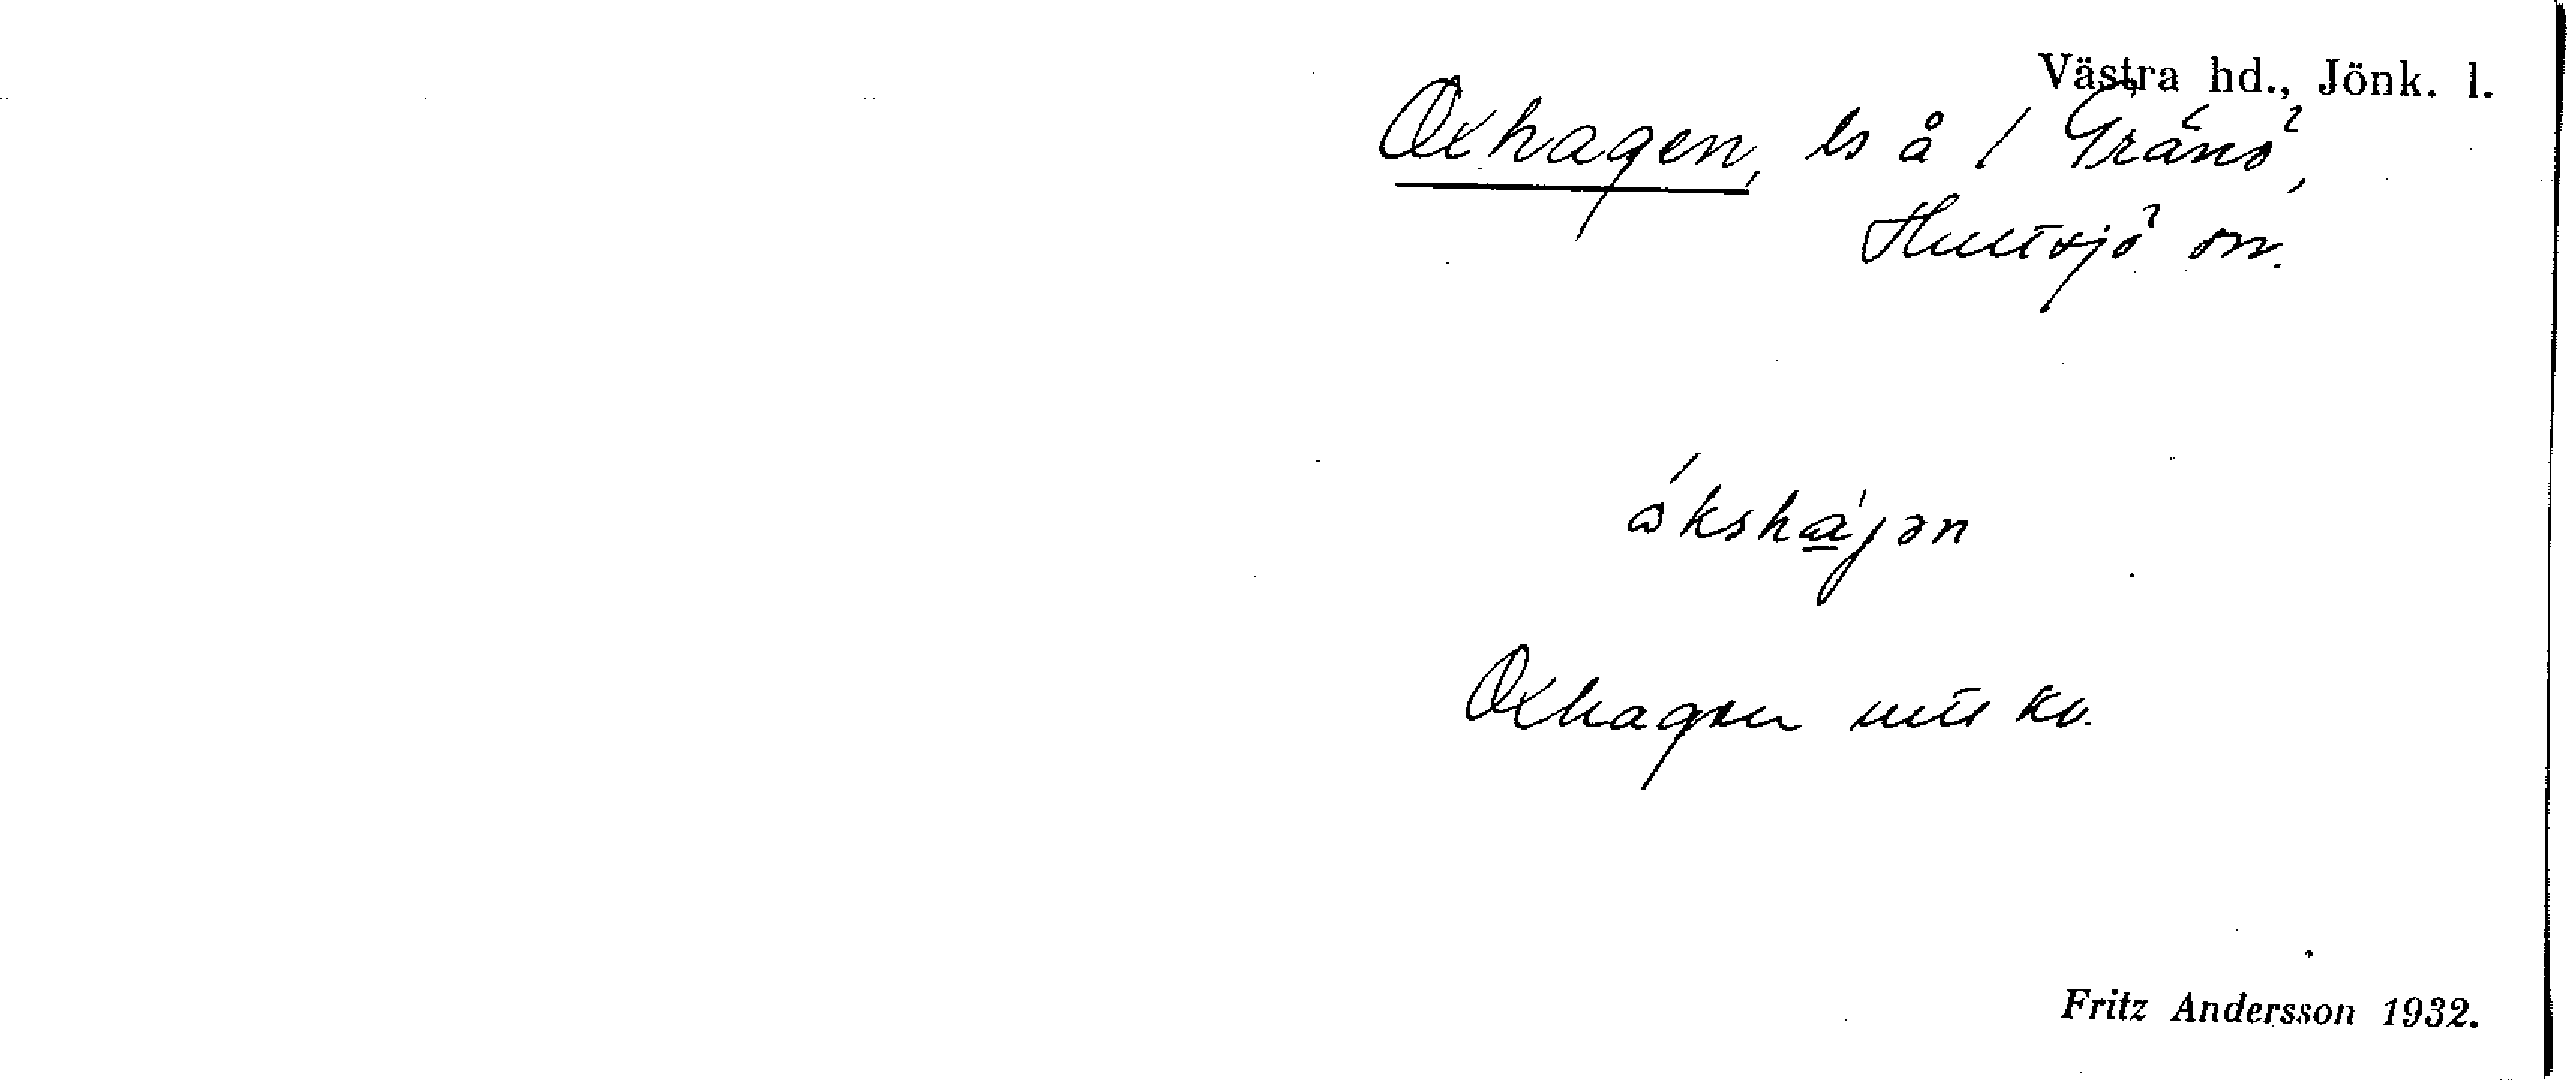 Västra hd., Jönk. l.
Oxhagen, ls å / Gränö,
Hultsjö sn.
ákshájən
Oxhagen uts ko.
Fritz Andersson 1932.